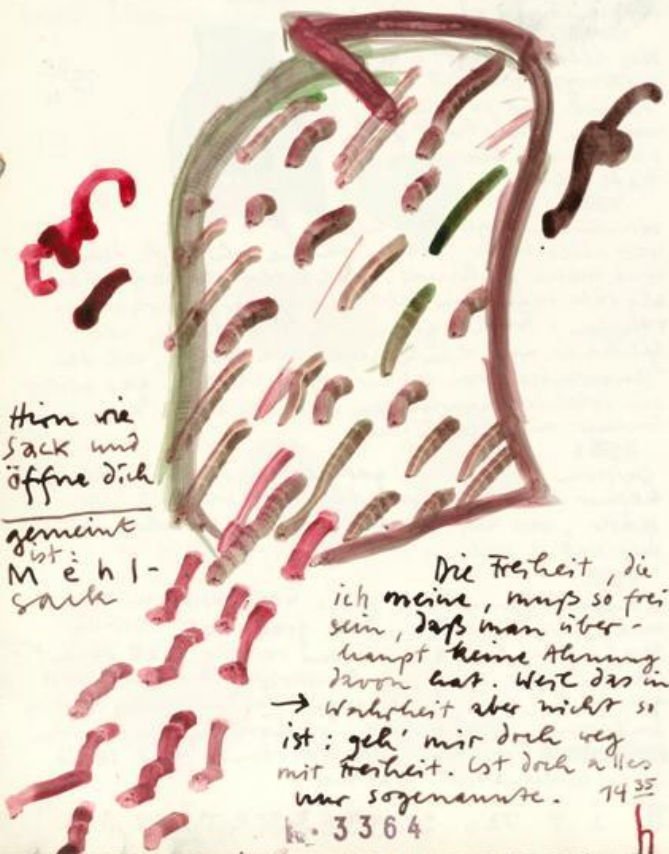 Hirn wie
Sack und
öffne dich
gemeint
ist:
Mehl-
sack
Die Freiheit, die
ich meine, muß so frei
sein, daß man über-
haupt keine Ahnung
davon hat. Weil das in
→ Wahrheit aber nicht so
ist: geh' mir doch weg
mit Freiheit. Ist doch alles
nur sogenannte. 14 35
3364